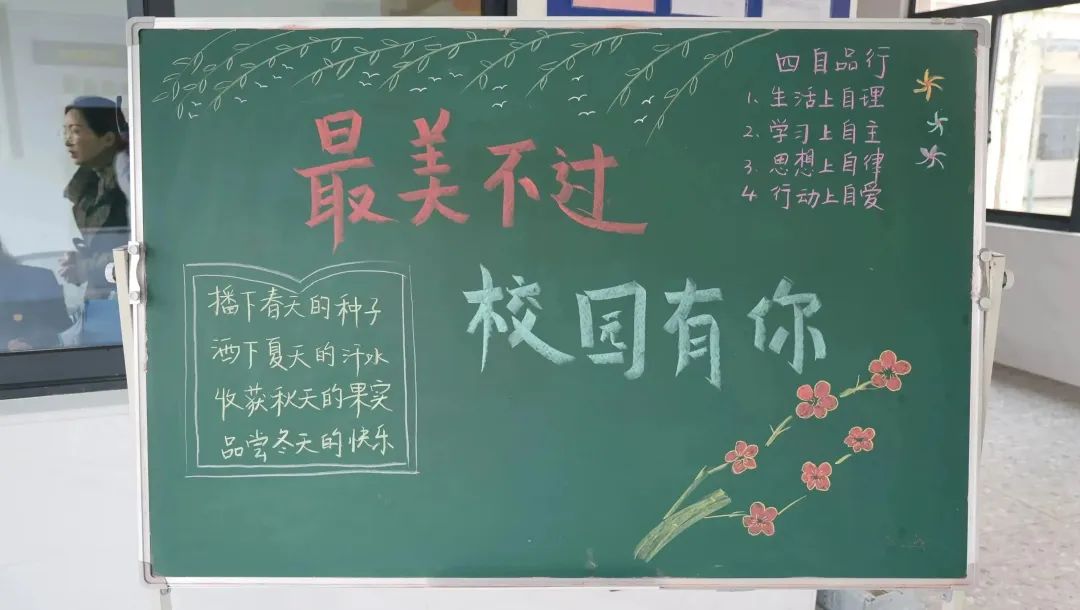 最美不过
校园有你
四自品行
1、生活上自理
2、学习上自主
3、思想上自律
4 行动上自爱
播下春天的种子
洒下夏天的汗水
收获秋天的果实
品尝冬天的快乐